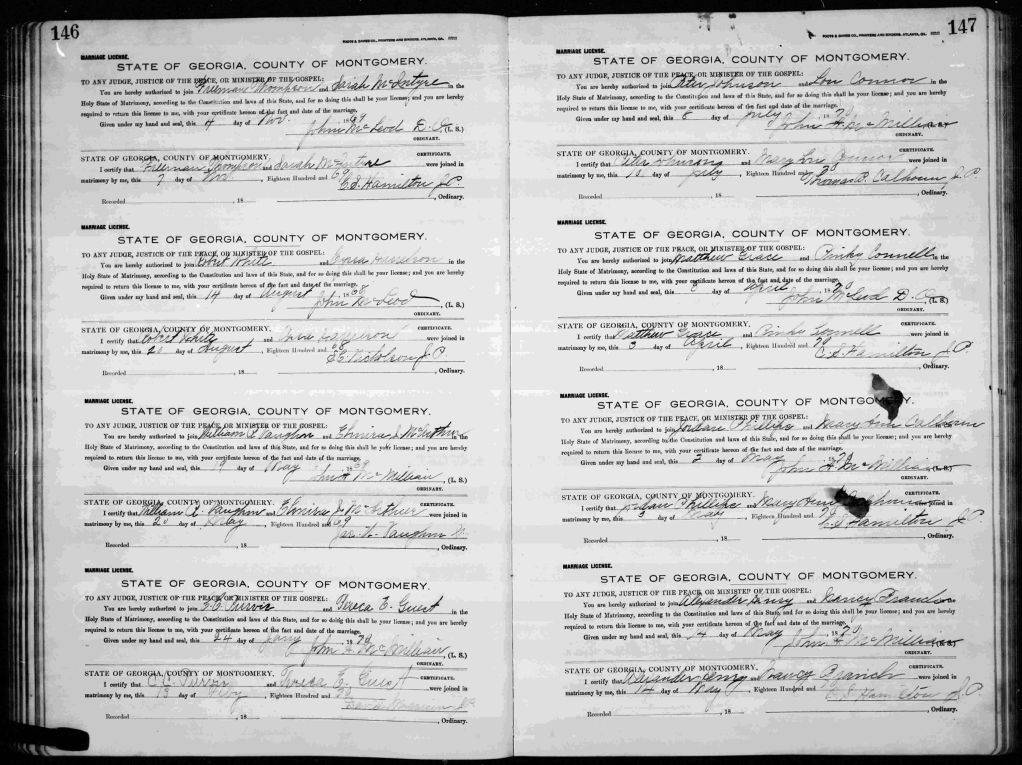 146
FOOTE & DAVIES CO., PRINTERS AND BINDERS, ATLANTA, GA.
MARRIAGE LICENSE.
STATE OF GEORGIA, COUNTY OF MONTGOMERY.
TO ANY JUDGE, JUSTICE OF THE PEACE, OR MINISTER OF THE GOSPEL:
You are hereby authorized to join Freeman Thompson and Sarah McEntyre in the
Holy State of Matrimony, according to the Constitution and laws of this State, and for so doing this shall be your license; and you are hereby
required to return this license to me, with your certificate hereon of the fact and date of the marriage.
Given under my hand and seal, this 4 day of Nov. 1869
John McLeod D.O. (L. S.)
ORDINARY.
STATE OF GEORGIA, COUNTY OF MONTGOMERY. CERTIFICATE.
I certify that Freeman Thompson and Sarah McEntyre were joined in
matrimony by me, this 7 day of Nov Eighteen Hundred and 69
C.S. Hamilton J.P.
Recorded , 18 , Ordinary.
MARRIAGE LICENSE.
STATE OF GEORGIA, COUNTY OF MONTGOMERY.
TO ANY JUDGE, JUSTICE OF THE PEACE, OR MINISTER OF THE GOSPEL:
You are hereby authorized to join Robert White and in the
Holy State of Matrimony, according to the Constitution and laws of this State, and for so doing this shall be your license; and you are hereby
required to return this license to me, with your certificate hereon of the fact and date of the marriage.
Given under my hand and seal, this 14 day of August 1868
John McLeod (L. S.)
ORDINARY.
STATE OF GEORGIA, COUNTY OF MONTGOMERY. CERTIFICATE.
I certify that Robert White and were joined in
matrimony by me, this 20 day of August Eighteen Hundred and 68
Nicholson J.P.
Recorded , 18 , Ordinary.
MARRIAGE LICENSE.
STATE OF GEORGIA, COUNTY OF MONTGOMERY.
TO ANY JUDGE, JUSTICE OF THE PEACE, OR MINISTER OF THE GOSPEL:
You are hereby authorized to join William R. Vaughn and Elmira J. McArthur in the
Holy State of Matrimony, according to the Constitution and laws of this State, and for so doing this shall be your license; and you are hereby
required to return this license to me, with your certificate hereon of the fact and date of the marriage.
Given under my hand and seal, this 19 day of May 1869
John H McMillian (L. S.)
ORDINARY.
STATE OF GEORGIA, COUNTY OF MONTGOMERY. CERTIFICATE.
I certify that William R. Vaughn and Elmira J. McArthur were joined in
matrimony by me, this 20 day of May Eighteen Hundred & 69
Vaughn
Recorded , 18 , Ordinary.
MARRIAGE LICENSE.
STATE OF GEORGIA, COUNTY OF MONTGOMERY.
TO ANY JUDGE, JUSTICE OF THE PEACE, OR MINISTER OF THE GOSPEL:
You are hereby authorized to join Purvis and Tereca E. Guest in the
Holy State of Matrimony, according to the Constitution and laws of this State, and for so doing this shall be your license; and you are hereby
required to return this license to me, with your certificate hereon of the fact and date of the marriage.
Given under my hand and seal, this 24 day of Jany 1870
John H McMillian (L. S.)
ORDINARY.
STATE OF GEORGIA, COUNTY OF MONTGOMERY. CERTIFICATE.
I certify that Purvis and Tereca E. Guest were joined in
matrimony by me, this 13 day of Eighteen Hundred and 70
Recorded , 18 , Ordinary.
147
FOOTE & DAVIES CO., PRINTERS AND BINDERS, ATLANTA, GA.
MARRIAGE LICENSE.
STATE OF GEORGIA, COUNTY OF MONTGOMERY.
TO ANY JUDGE, JUSTICE OF THE PEACE, OR MINISTER OF THE GOSPEL:
You are hereby authorized to join Peter Johnson and Lou Connor in the
Holy State of Matrimony, according to the Constitution and laws of this State, and for so doing this shall be your license; and you are hereby
required to return this license to me, with your certificate hereon of the fact and date of the marriage.
Given under my hand and seal, this 8 day of July 1870
John H McMillian (L. S.)
ORDINARY.
STATE OF GEORGIA, COUNTY OF MONTGOMERY. CERTIFICATE.
I certify that Peter Johnson and Mary Lou Connor were joined in
matrimony by me, this 10 day of July Eighteen Hundred and 70
Thomas P. Calhoun J.P.
Recorded , 18 , Ordinary.
MARRIAGE LICENSE.
STATE OF GEORGIA, COUNTY OF MONTGOMERY.
TO ANY JUDGE, JUSTICE OF THE PEACE, OR MINISTER OF THE GOSPEL:
You are hereby authorized to join Matthew Grace and Pinky Connell in the
Holy State of Matrimony, according to the Constitution and laws of this State, and for so doing this shall be your license; and you are hereby
required to return this license to me, with your certificate hereon of the fact and date of the marriage.
Given under my hand and seal, this day of April 1870
John McLeod D.O. (L. S.)
ORDINARY.
STATE OF GEORGIA, COUNTY OF MONTGOMERY. CERTIFICATE.
I certify that Matthew Grace and Pinky Connell were joined in
matrimony by me, this 3 day of April Eighteen Hundred and 70
C.S. Hamilton J.P.
Recorded , 18 , Ordinary.
MARRIAGE LICENSE.
STATE OF GEORGIA, COUNTY OF MONTGOMERY.
TO ANY JUDGE, JUSTICE OF THE PEACE, OR MINISTER OF THE GOSPEL:
You are hereby authorized to join Jordan Phillips and Mary Ann Calhoun
Holy State of Matrimony, according to the Constitution and laws of this State, and for so doing this shall be your license; and you are hereby
required to return this license to me, with your certificate hereon of the fact and date of the marriage.
Given under my hand and seal, this 2 day of May 1870
John H McMillian (L. S.)
ORDINARY.
STATE OF GEORGIA, COUNTY OF MONTGOMERY. CERTIFICATE.
I certify that Jordan Phillips and Mary Ann Calhoun were joined in
matrimony by me, this 3 day of May Eighteen Hundred and 70
C.S. Hamilton J.P.
Recorded , 18 , Ordinary.
MARRIAGE LICENSE.
STATE OF GEORGIA, COUNTY OF MONTGOMERY.
TO ANY JUDGE, JUSTICE OF THE PEACE, OR MINISTER OF THE GOSPEL:
You are hereby authorized to join Alexander and Nancy Branch in the
Holy State of Matrimony, according to the Constitution and laws of this State, and for so doing this shall be your license; and you are hereby
required to return this license to me, with your certificate hereon of the fact and date of the marriage.
Given under my hand and seal, this 14 day of May 1870
John H McMillian (L. S.)
ORDINARY.
STATE OF GEORGIA, COUNTY OF MONTGOMERY. CERTIFICATE.
I certify that Alexander and Nancy Branch were joined in
matrimony by me, this 14 day of May Eighteen Hundred and 70
C.S. Hamilton J.P.
Recorded , 18 , Ordinary.